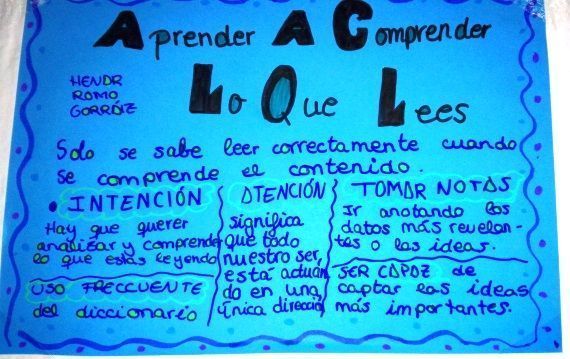 Aprender A Comprender
Lo Que Lees
HENDR
ROMO
GORRÓIZ
Solo se sabe leer correctamente cuando
se comprende el contenido.
• INTENCIÓN
Hay que querer
analizar y comprender
lo que estás leyendo
USO FRECCUENTE
del diccionario
ATENCIÓN
significa
que todo
nuestro ser,
está actuan
do en una
única dirección
TOMAR NOTAS
Ir anotando los
datos más revelan-
tes o las ideas.
SER CAPAZ de
captar las ideas
más importantes.